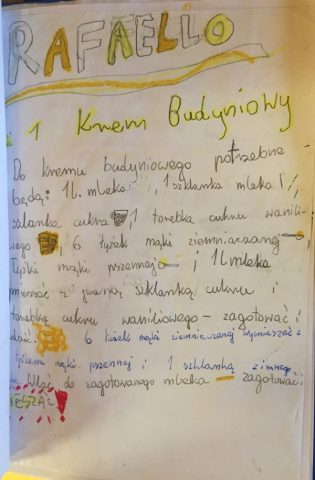 RAFAELLO
1 Krem Budyniowy
Do kremu budyniowego potrzebne
będą: 1L. mleka, 1 szklanka mleka!,
szlanka cukru, 1 torebka cukru wanilio-
wego, 6 łyżek mąki ziemniaczanej,
łyżki mąki pszennej i 1L mleka
mieszać z jedną szklanką cukru i
torebką cukru waniliowego - zagotować i
6 łyżek mąki ziemniaczanej wymieszać z
łyżkami mąki pszennej i 1 szklanką zimnego
Wlać do zagotowanego mleka zagotować